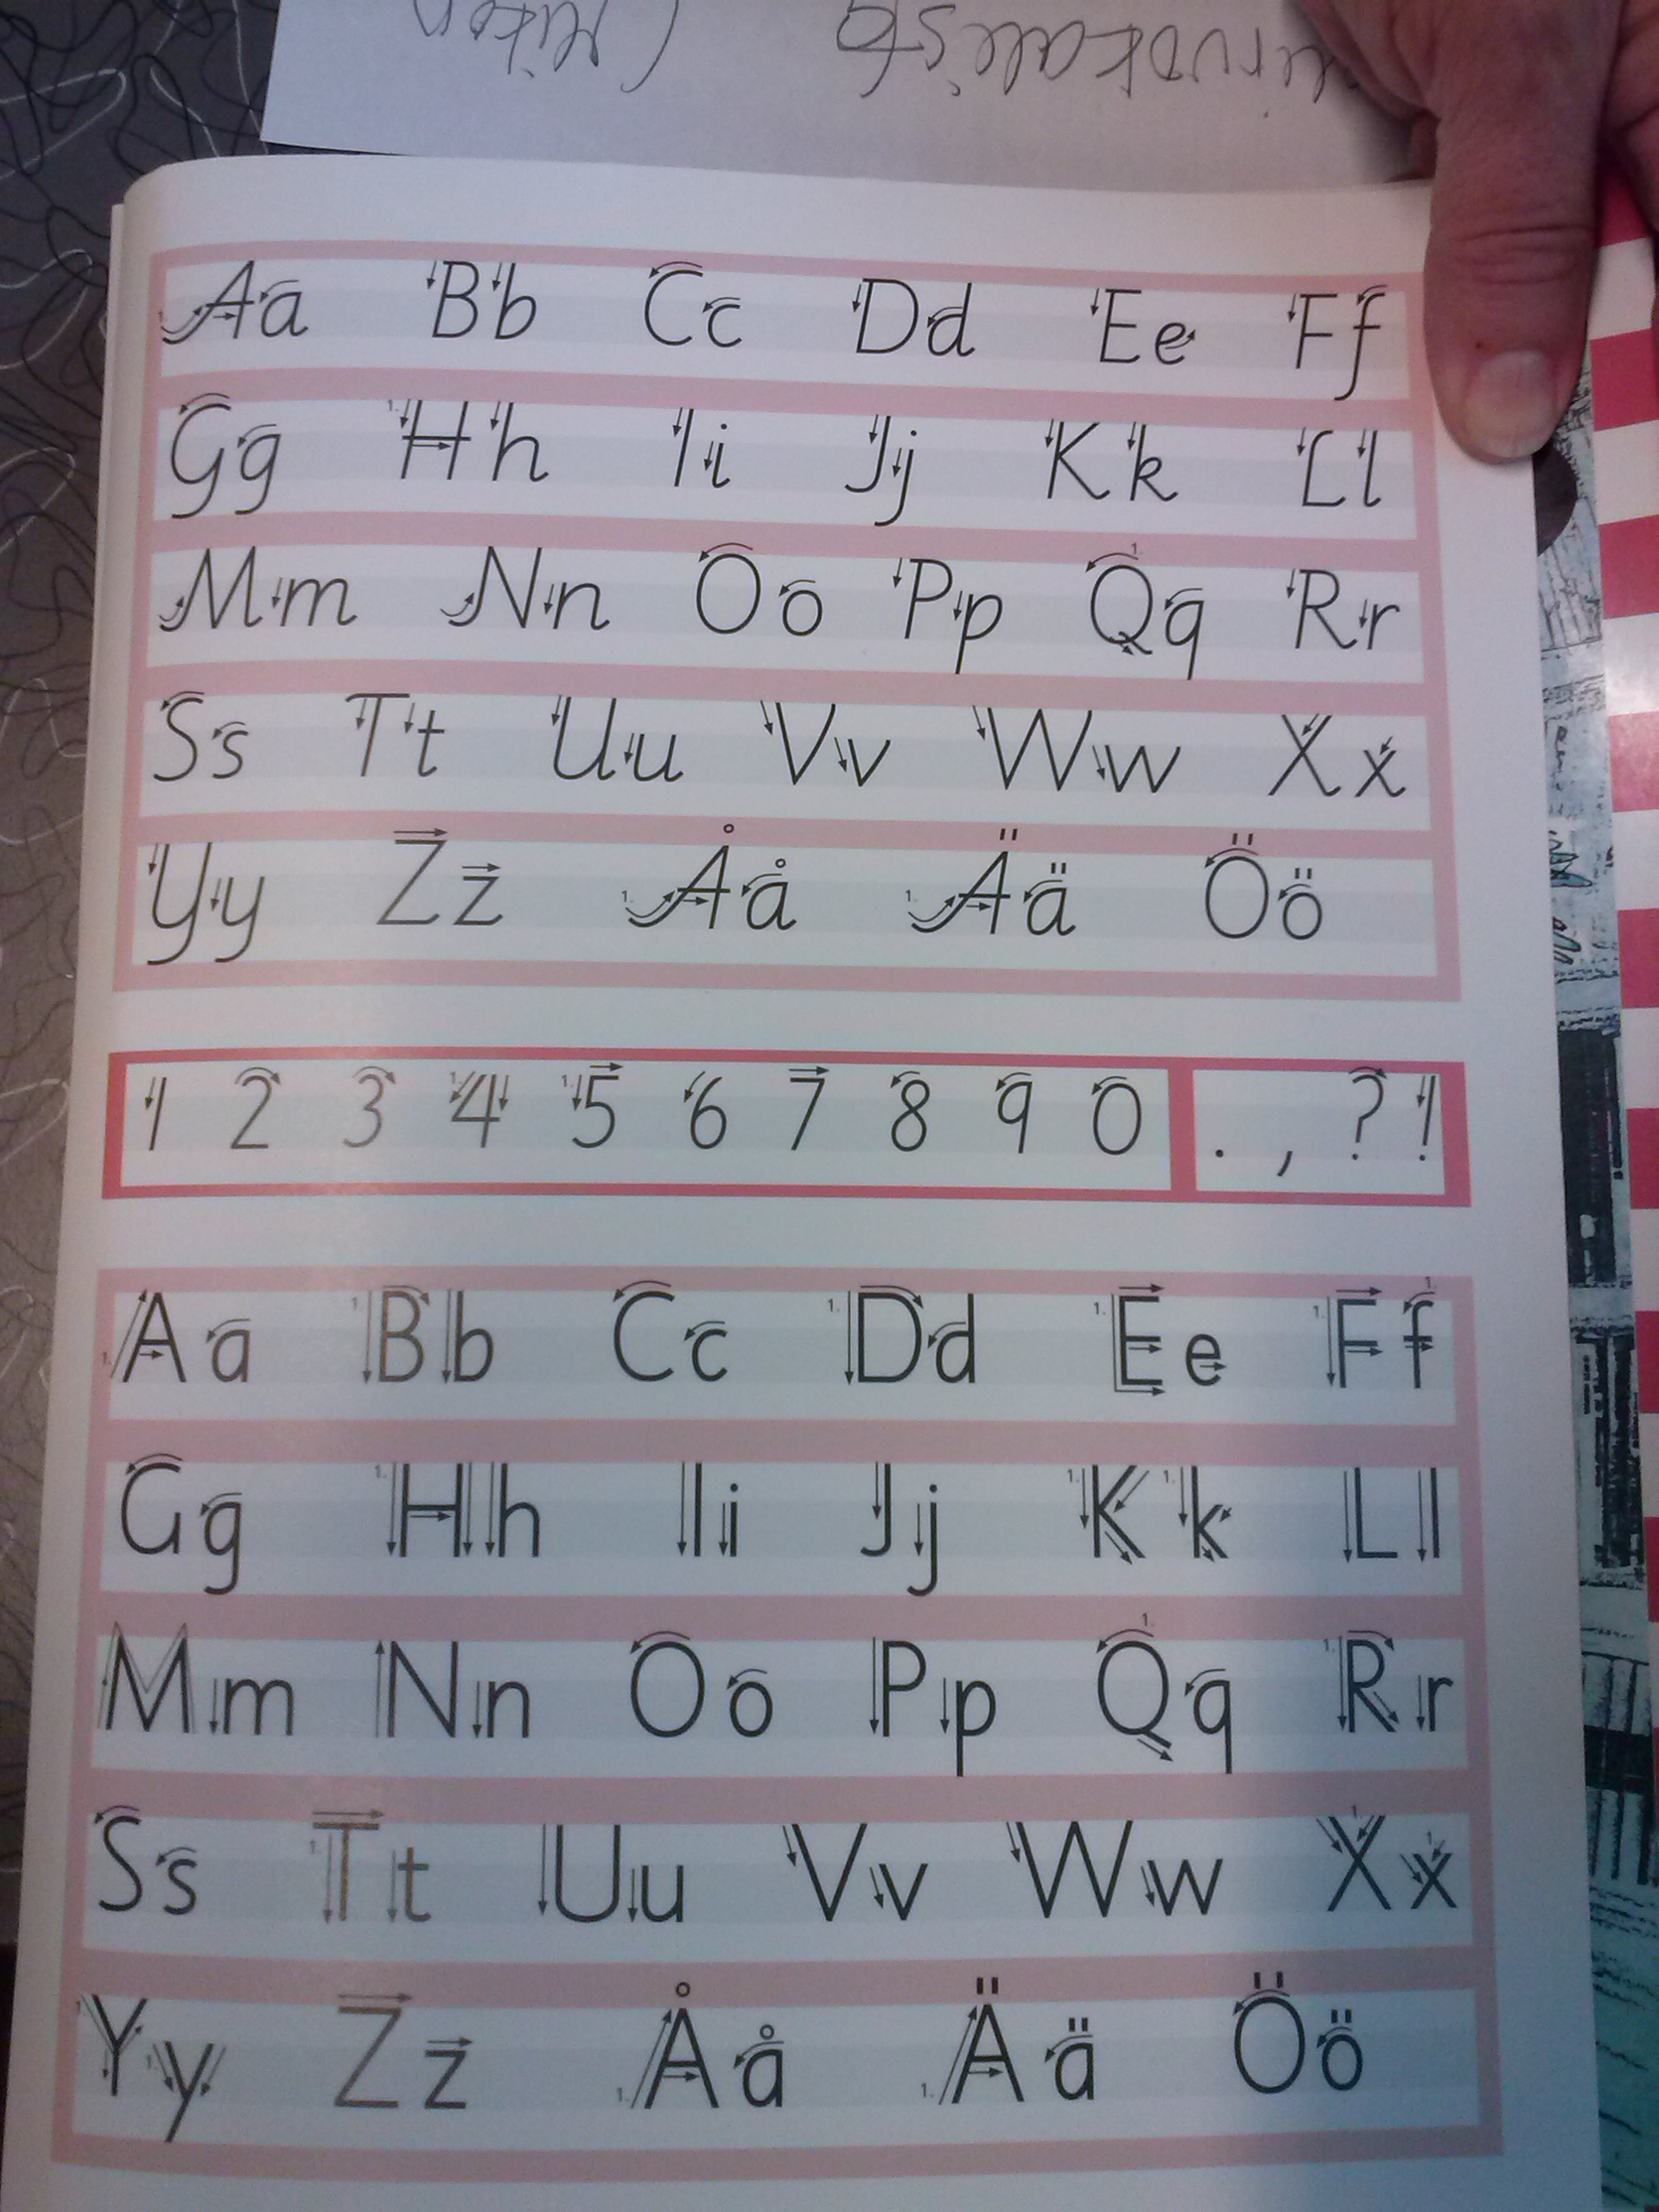 Aa Bb Cc Dd Ee Ff
Gg Hh Ii Jj Kk Ll
Mm Nn Oo Pp Qq Rr
Ss Tt Uu Vv Ww Xx
Yy Zz Åå Ää Öö
1 2 3 4 5 6 7 8 9 0 . , ? !
Aa Bb Cc Dd Ee Ff
Gg Hh Ii Jj Kk Ll
Mm Nn Oo Pp Qq Rr
Ss Tt Uu Vv Ww Xx
Yy Zz Åå Ää Öö